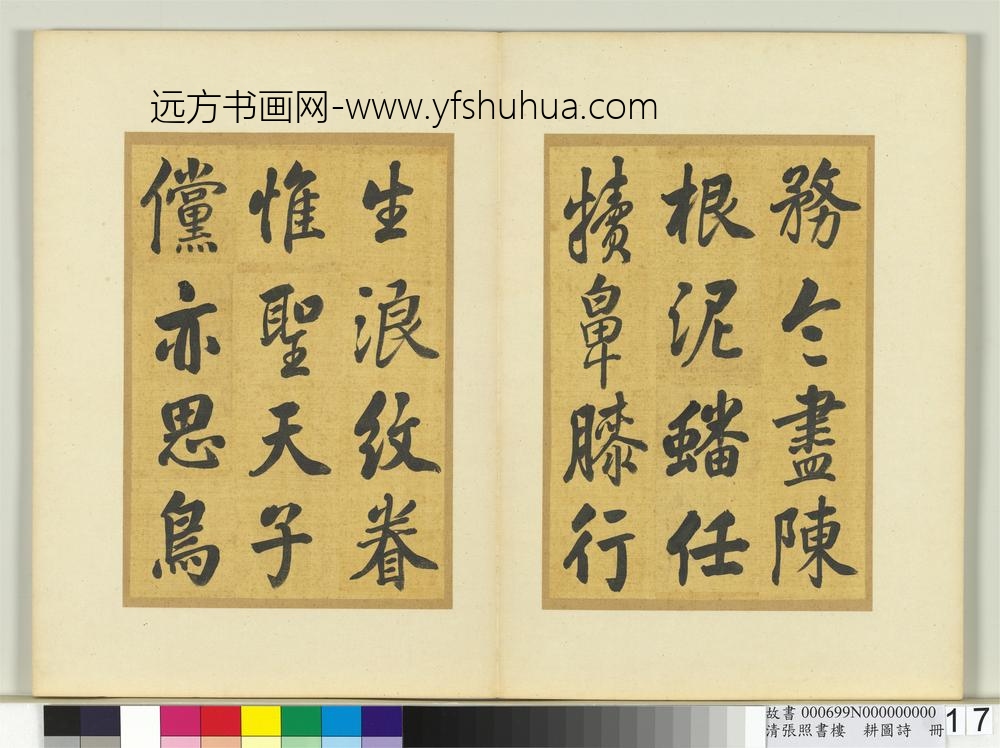 远方书画网-www.yfshuhua.com
務令盡陳
根泥蟠任
犢鼻膝行
生浪紋眷
惟聖天子
儻亦思鳥
故書 000699N000000000
清張照書樓　耕圖詩　冊
17